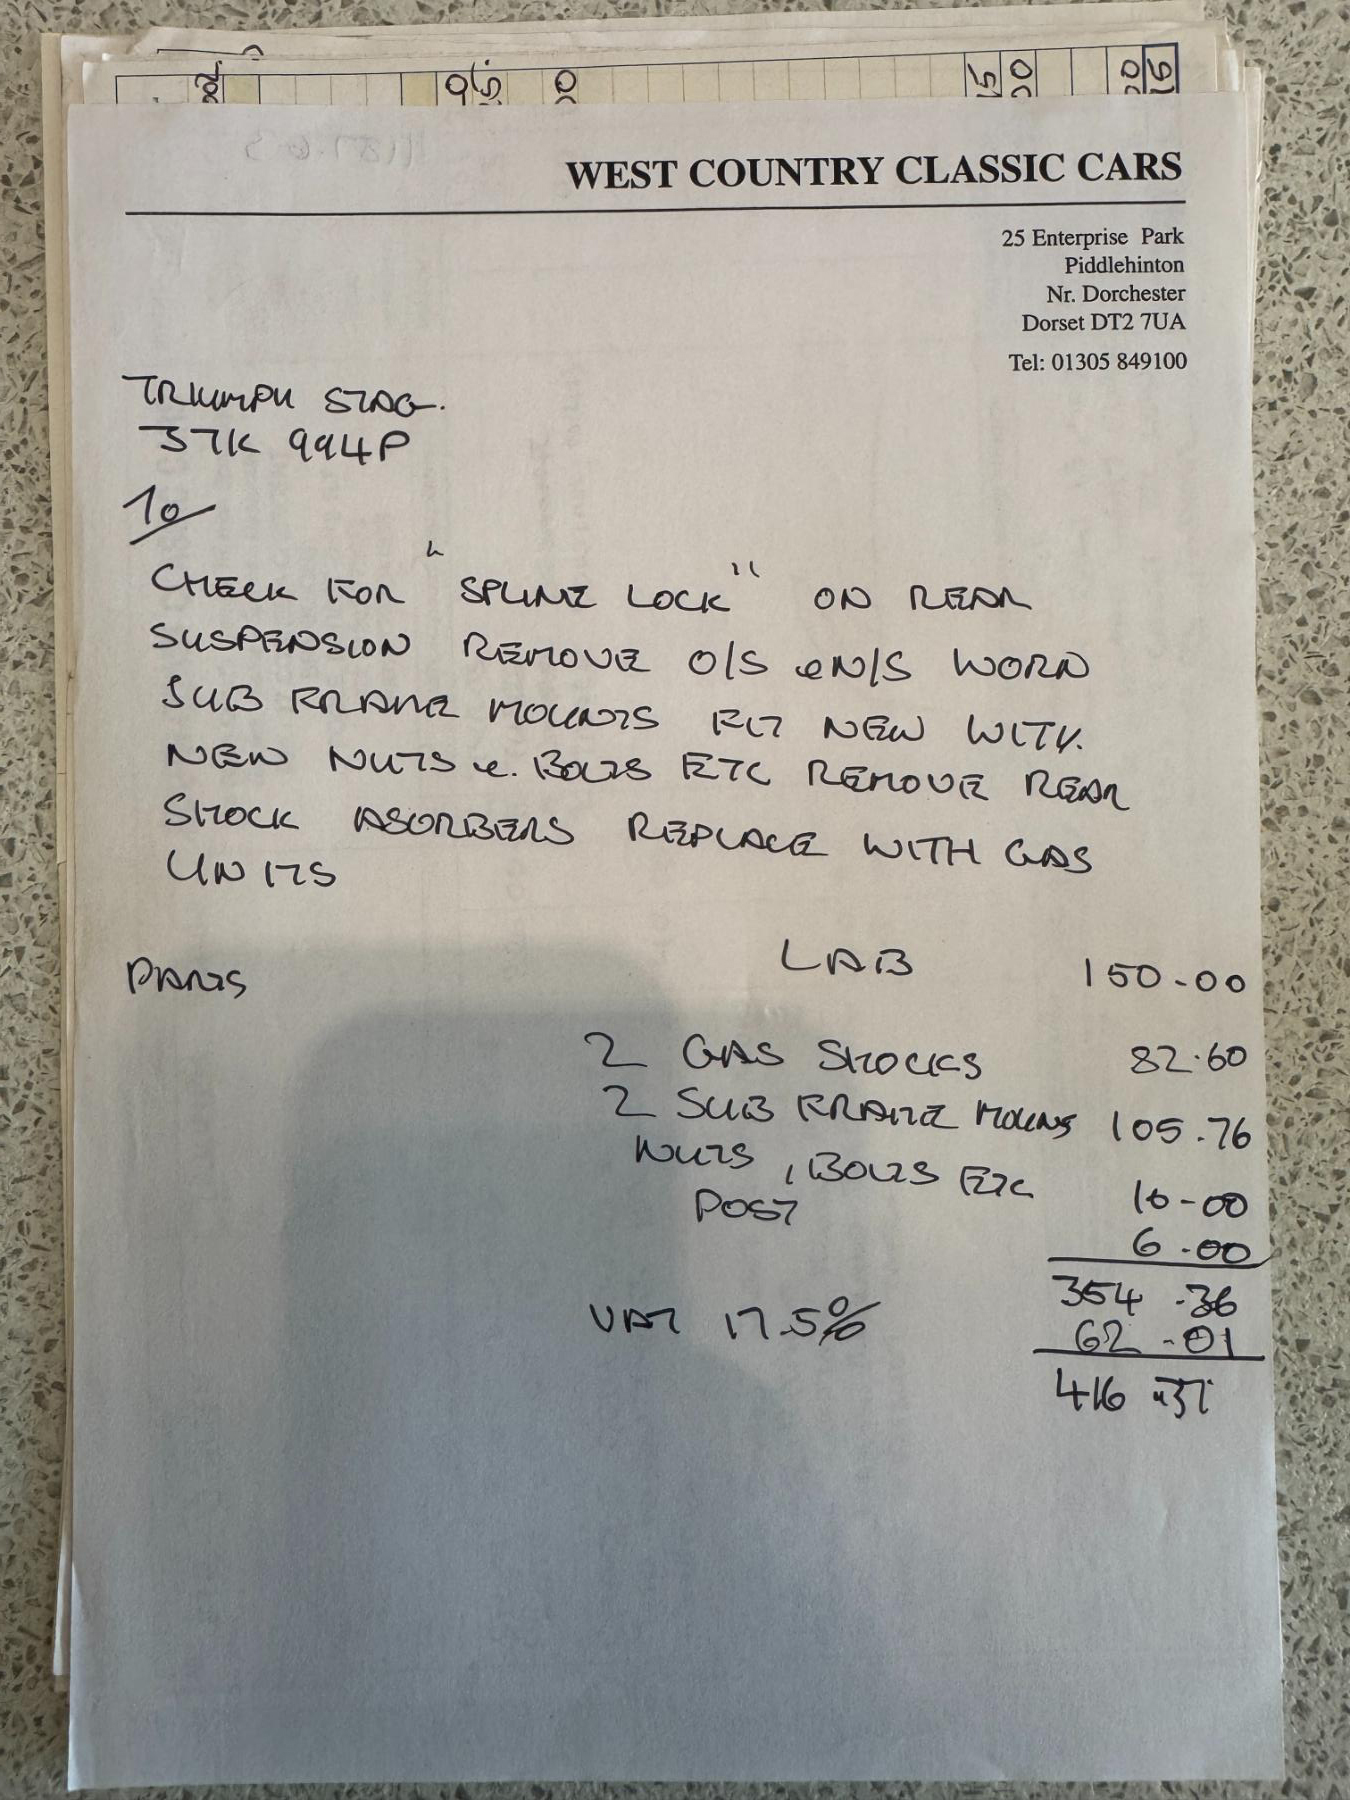 WEST COUNTRY CLASSIC CARS
25 Enterprise Park
Piddlehinton
Nr. Dorchester
Dorset DT2 7UA
Tel: 01305 849100
TRIUMPH STAG.
JTK 994P
To
CHECK FOR "SPLINE LOCK" ON REAR
SUSPENSION REMOVE O/S & N/S WORN
SUB FRAME MOUNTS FIT NEW WITH
NEW NUTS & BOLTS ETC REMOVE REAR
SHOCK ASORBERS REPLACE WITH GAS
UNITS
PARTS LAB 150.00
2 GAS SHOCKS 82.60
2 SUB FRAME MOUNTS 105.76
NUTS, BOLTS ETC 10-00
POST 6.00
354.36
VAT 17.5% 62.01
416.37